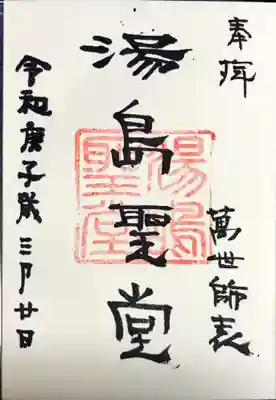 奉拝
萬世師表
湯島聖堂
令和庚子歳三月廿日
湯島聖堂